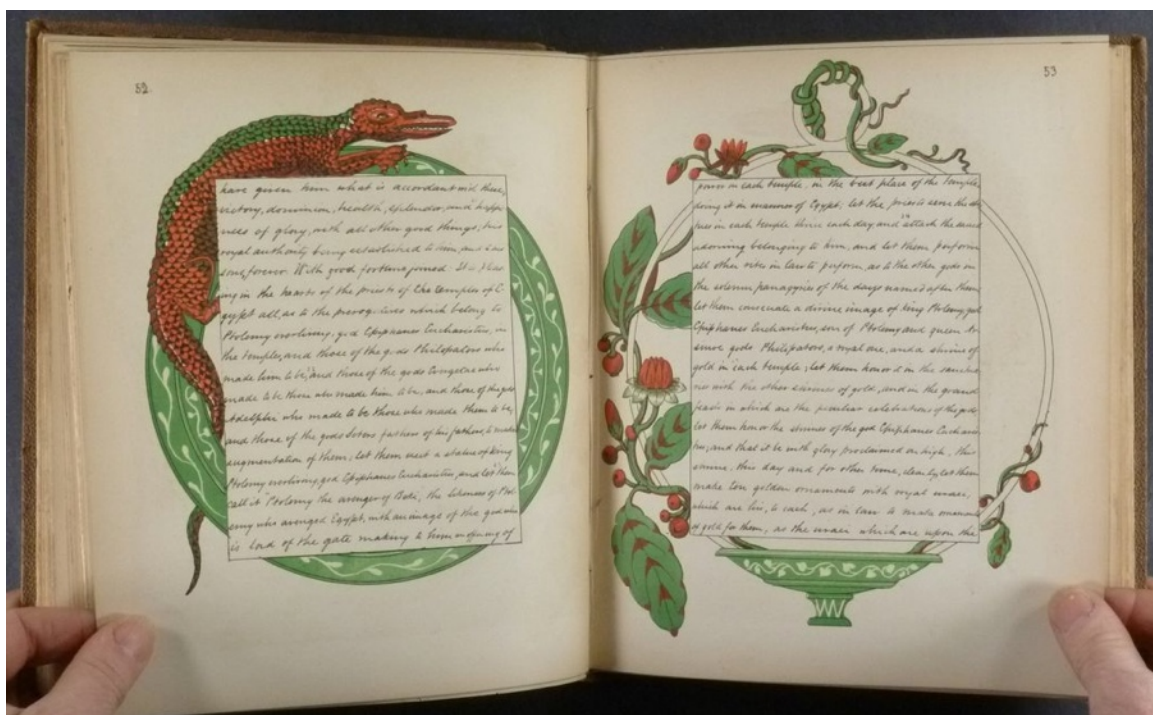 52.
have given him what is accordant with them,
victory, dominion, health, splendor, and happi
ness of glory, with all other good things, his
royal authority being established to him, and his
sons forever. With good fortune joined. It is pleas
ing in the hearts of the priests of the temples of E
gypt all, as to the prerogatives which belong to
Ptolemy everliving, god Epiphanes Eucharistus, in
the temples, and those of the gods Philopators who
made him to be, and those of the gods Euergetae who
made to be those who made him to be, and those of the gods
Adelphi who made to be those who made them to be,
and those of the gods Soters fathers of his fathers, to make
augmentation of them; let them erect a statue of king
Ptolemy everliving, god Epiphanes Eucharistus, and let them
call it Ptolemy the avenger of Baki, the likeness of Ptol
emy who avenged Egypt, with an image of the god who
is lord of the gate making to him an offering of
53
power in each temple, in the best place of the temple,
doing it in manner of Egypt; let the priests serve the sta
tues in each temple thrice each day and attach the sacred
in
adorning belonging to him, and let them perform
all other rites in law to perform, as to the other gods in
the solemn panagyries of the days named after them
let them consecrate a divine image of king Ptolemy, god
Epiphanes Eucharistus, son of Ptolemy and queen Ar
sinoe gods Philopators, a royal one, and a shrine of
gold in each temple; let them honor it in the sanctua
ries with the other shrines of gold, and in the grand
feasts in which are the peculiar celebrations of the gods
let them honor the shrines of the god Epiphanes Eucharis
tus; and that it be with glory proclaimed on high, this
shrine, this day and for other time, clearly, let them
make ten golden ornaments with royal uraei,
which are to each, as in law to make ornaments
of gold for them, as the uraei which are upon the